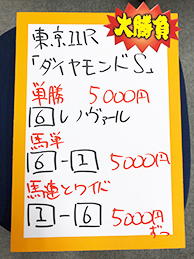 大勝負
東京11R
「ダイヤモンドS」
単勝 5000円
6 レノヴァール
馬単
6-1 5000円
馬連とワイド
1-6 5000円
ずつ